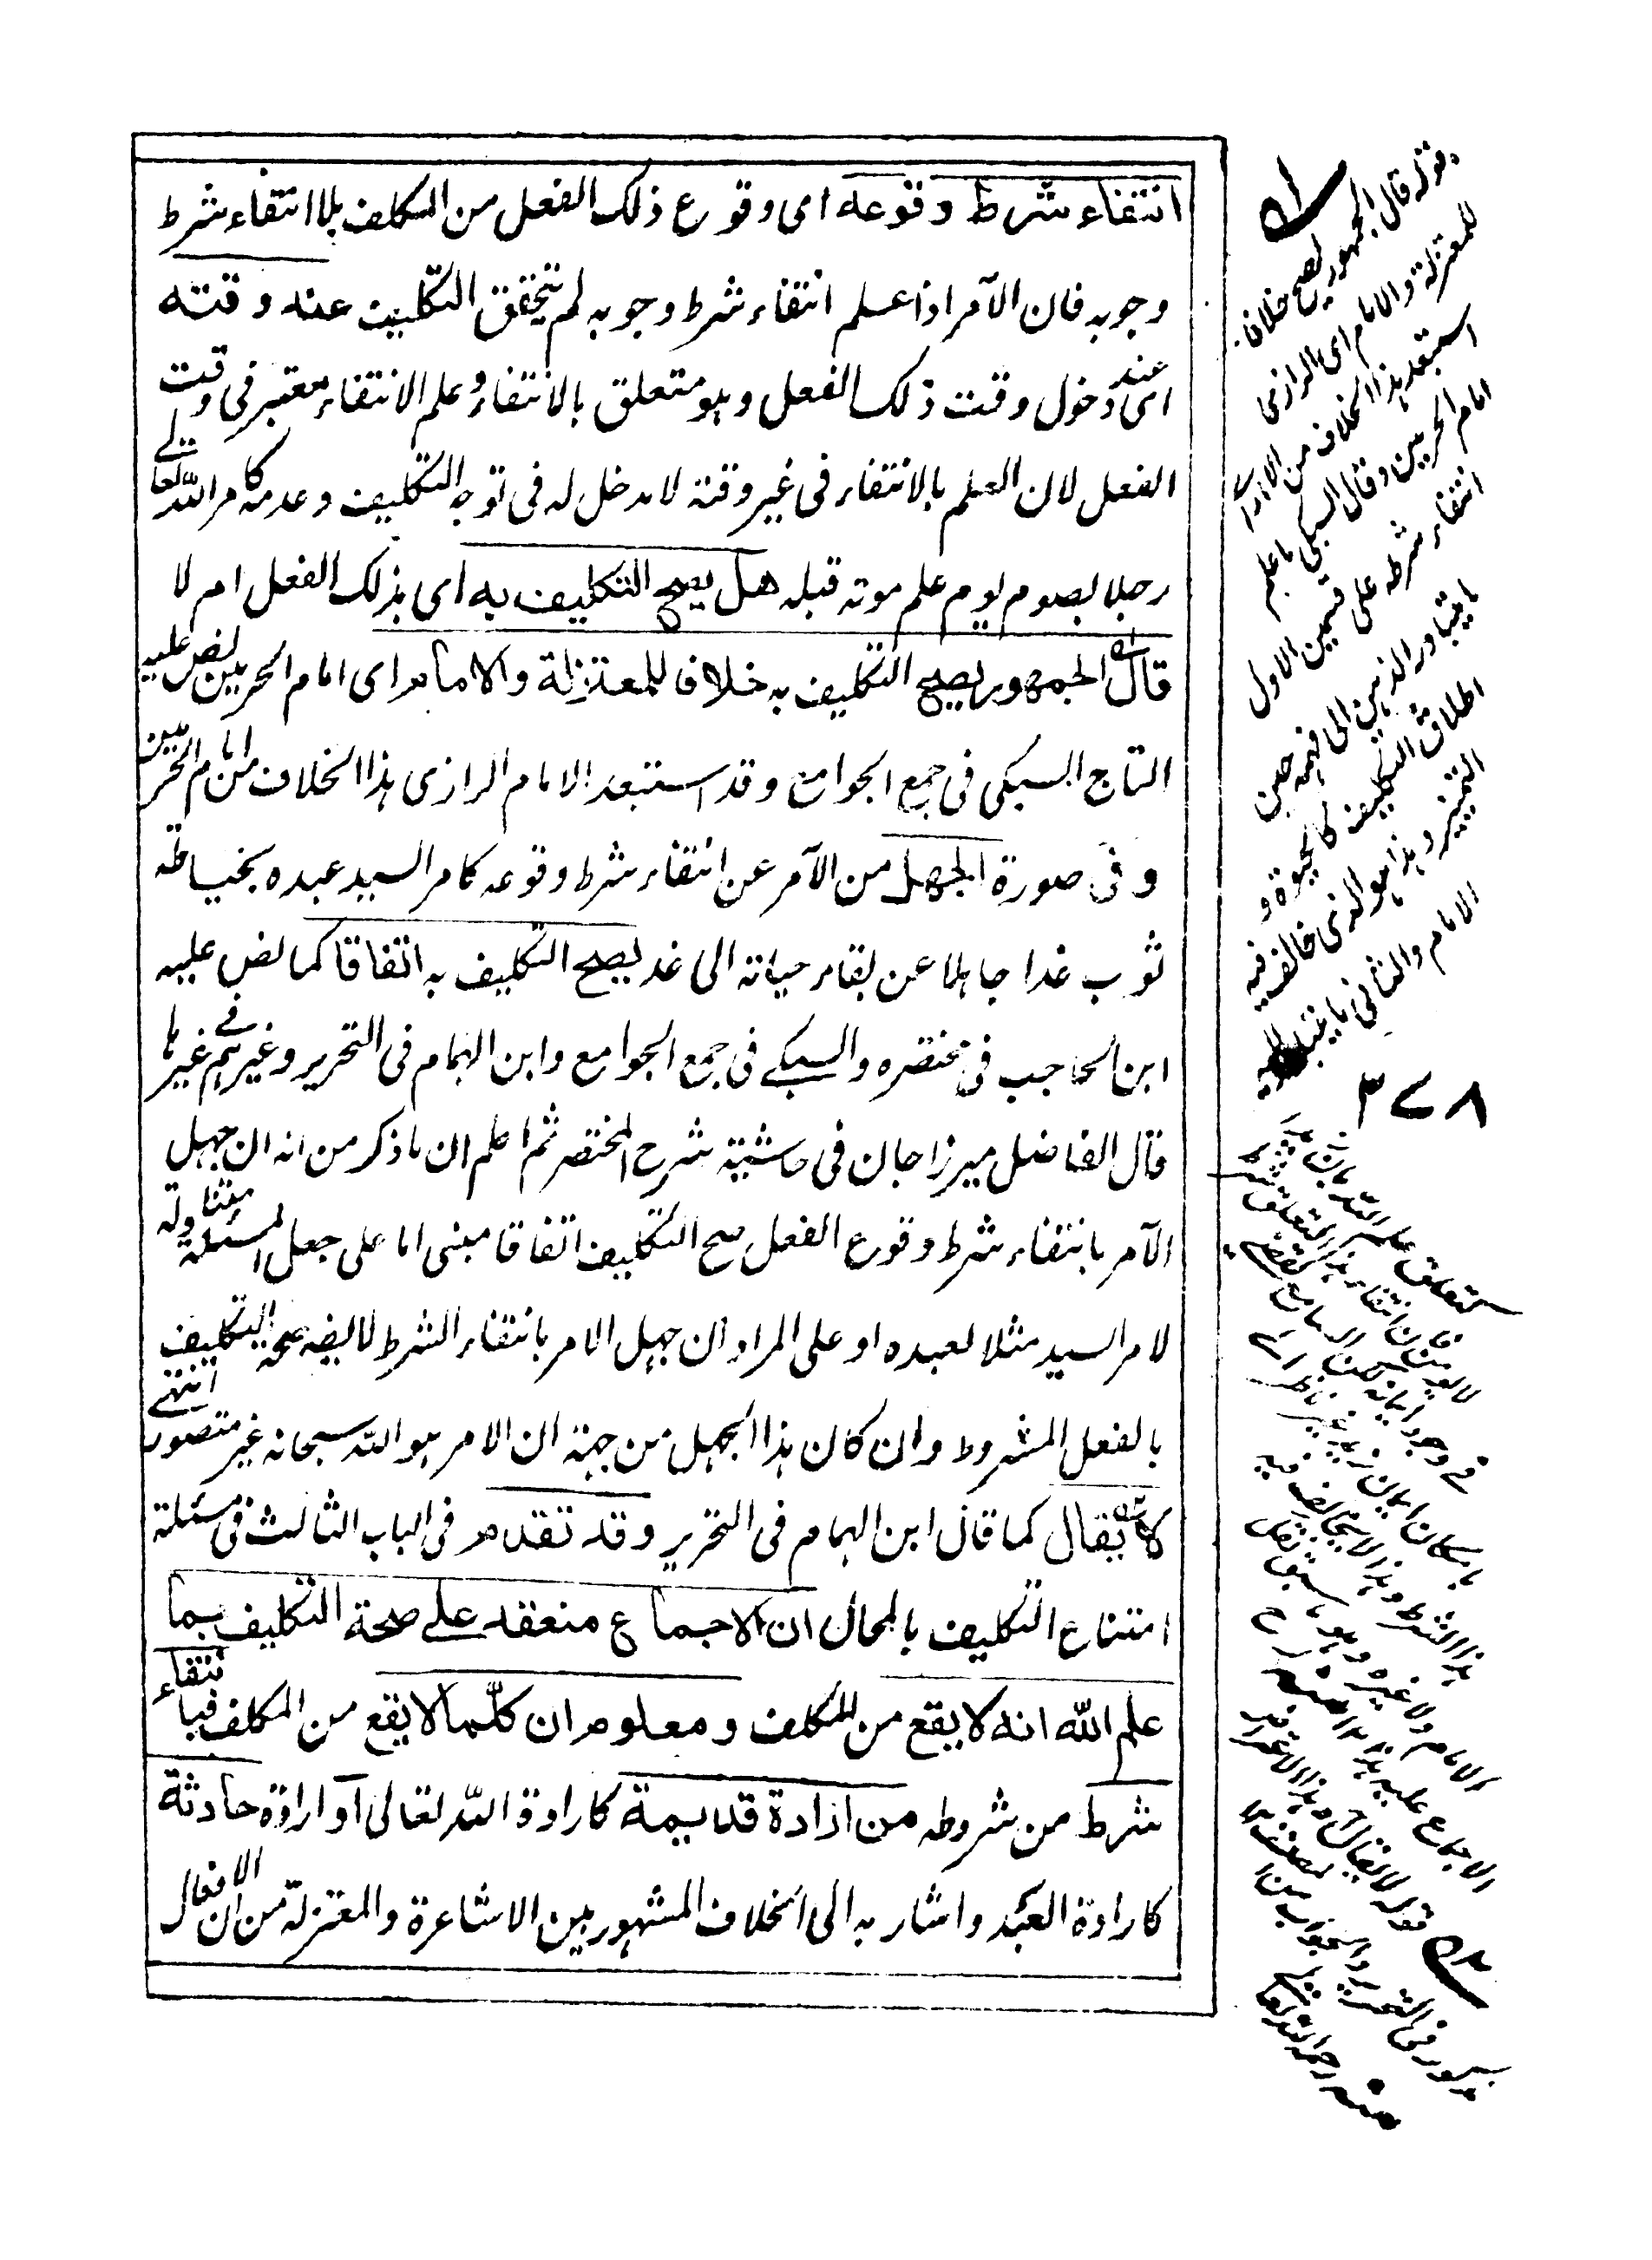 انتفاء شرط وقوعه اى وقوع ذلك الفعل من المكلف بلا انتفاء شرط
وجوبه فان الآمر اذا علم انتفاء شرط وجوبه لم يتحقق التكليف عنه وقته
اى عند دخول وقت ذلك الفعل وهو متعلق بالانتفاء و علم الانتفاء معتبر فى وقت
الفعل لان العلم بالانتفاء فى غير وقته لا دخل له فى توجه التكليف وعدمه كامر الله تعالے
رجلا بصوم يوم علم موته قبله هل يصح التكليف به اى بذلك الفعل ام لا
قال الجمهور يصح التكليف به خلافا للمعتزلة والامام اى امام الحرمين نص عليه
التاج السبكى فى جمع الجوامع وقد استبعد الامام الرازى هذا الخلاف من امام الحرمين
وفى صورة الجهل من الآمر عن انتفاء شرط وقوعه كامر السيد عبده بخياطة
ثوب غدا جاهلا عن بقاء حياته الى غد يصح التكليف به اتفاقا كما نص عليه
ابن الحاجب فى مختصره والسبكے فى جمع الجوامع وابن الهمام فى التحرير وغيرهم فے غيرها
قال الفاضل ميرزا جان فى حاشية شرح المختصر ثم اعلم ان ما ذكر من انه ان جهل
الآمر بانتفاء شرط وقوع الفعل صح التكليف اتفاقا مبنى اما على جعل المسئلة متناولة
لامر السيد مثلا لعبده او على المراد ان جهل الامر بانتفاء الشرط لا يضر صحة التكليف
بالفعل المشروط وان كان هذا الجهل من جهة ان الامر هو الله سبحانه غير متصور انتهے
لا يقال كما قال ابن الهمام فى التحرير وقد تقدم فى الباب الثالث فى مسئلة
امتناع التكليف بالمحال ان الاجماع منعقد علے صحة التكليف بما
علم الله انه لا يقع من المكلف ومعلوم ان كلما لا يقع من المكلف فبانتفاء
شرط من شروطه من ارادة قديمة كارادة الله تعالى او ارادة حادثة
كارادة العبد واشار به الى الخلاف المشهور بين الاشاعرة والمعتزلة من ان الافعال
قوله قال الجمهور يصح خلافا
للمعتزلة والامام اى الرازى
استبعد هذا الخلاف من
امام الحرمين وقال السبكى ما علم
انتفاء شرطه على قسمين الاول
ما يتبادر الذهن الى فهمه حين
اطلاق التكليف كالحيوة و
التمييز وهذا هو الذى خالف فيه
الامام والثانى
٣٧٨
لا يقال
فى التحرير والجواب
منه رحمه الله تعالى